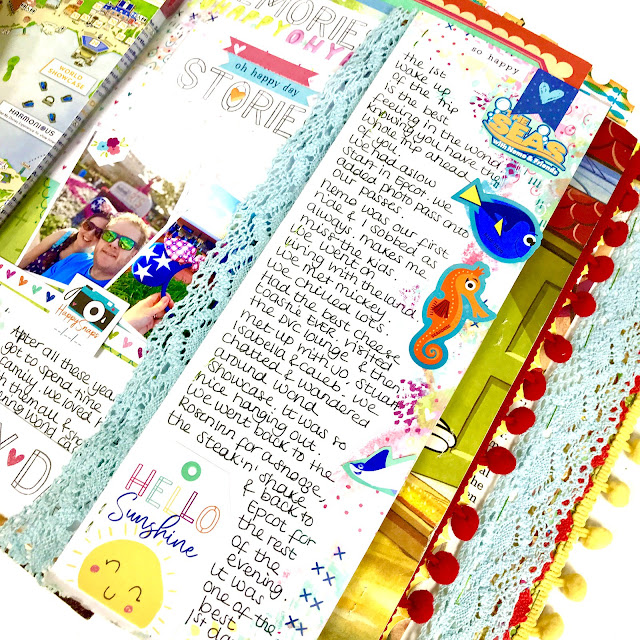 WORLD
SHOWCASE
HARMONIOUS
MEMORIE
HAPPY OH Y
oh happy day
STORIE
Happy Snaps
After all these yea
got to spend time
family, we loved
them all &
Y D
so happy
THE SEAS
with Nemo & Friends
The 1st
wake up
of the trip
is the best
feeling in the world
knowing you have the
whole trip ahead
of you.
We had a slow
start in Epcot we
added photo pass onto
our passes.
Nemo was our first
ride & I sobbed as
always makes me
miss the kids
we went on
living with the land.
we met mickey.
we chilled lots.
Had the best cheese
toastie EVER, visited
the DVC lounge & then
met up with Jo, Stuart
Isabella & Caleb, we
chatted & wandered
around world
Showcase, it was so
nice hanging out.
we went back to the
Rosen inn for a snooze,
the steak n' shake
& back to
Epcot for
the rest
of the
evening.
it was
one of the
best
1st da
HELLO
Sunshine
al
the
on